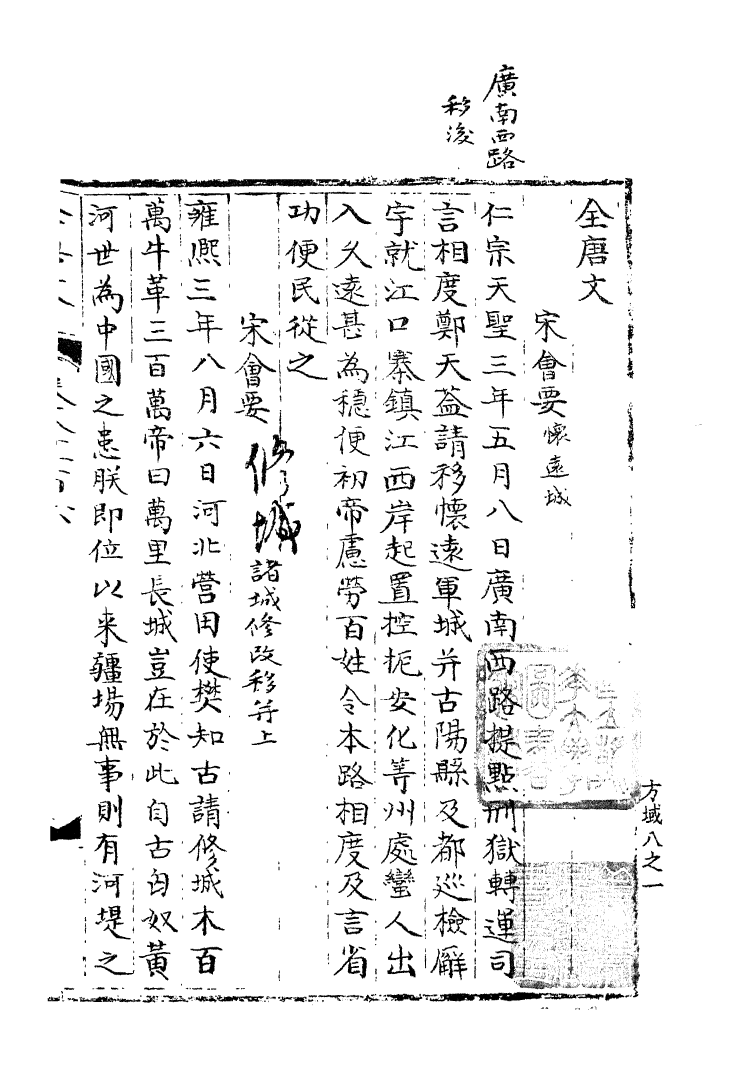 廣南西路
移後
方域八之一
全唐文
宋會要懷遠城
仁宗天聖三年五月八日廣南西路提點刑獄轉運司
言相度鄭天益請移懷遠軍城并古陽縣及都巡檢廨
宇就江口寨鎮江西岸起置控扼安化等州處蠻人出
入久遠甚為穩便初帝慮勞百姓令本路相度及言省
功便民從之
宋會要 修城 諸城修改移并上
雍熙三年八月六日河北營田使樊知古請修城木百
萬牛革三百萬帝曰萬里長城豈在於此自古匈奴黃
河世為中國之患朕即位以来疆場無事則有河堤之